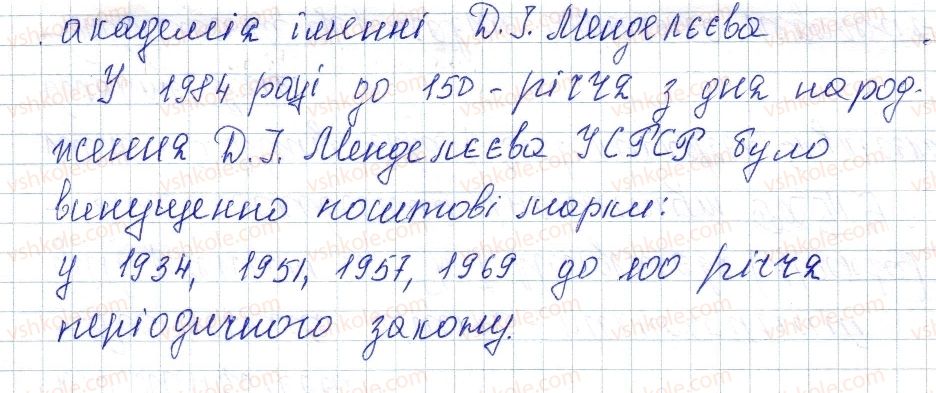 академія іменні Д.І. Менделєєва
У 1984 році до 150-річчя з дня народ-
ження Д.І. Менделєєва УСРСР було
випущенно поштові марки:
у 1934, 1951, 1957, 1969 до 100 річчя
періодичного закону.